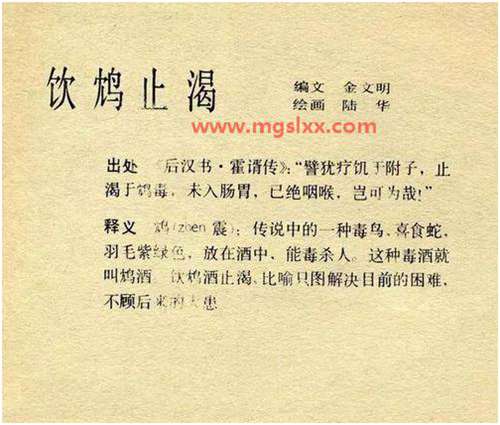 饮鸩止渴
编文 金文明
绘画 陆 华
www.mgslxx.com
出处 《后汉书·霍谞传》：“譬犹疗饥于附子，止
渴于鸩毒，未入肠胃，已绝咽喉，岂可为哉！”
释义 鸩（zhen 震）：传说中的一种毒鸟，喜食蛇，
羽毛紫绿色，放在酒中，能毒杀人。这种毒酒就
叫鸩酒。饮鸩酒止渴，比喻只图解决目前的困难，
不顾后来的大患